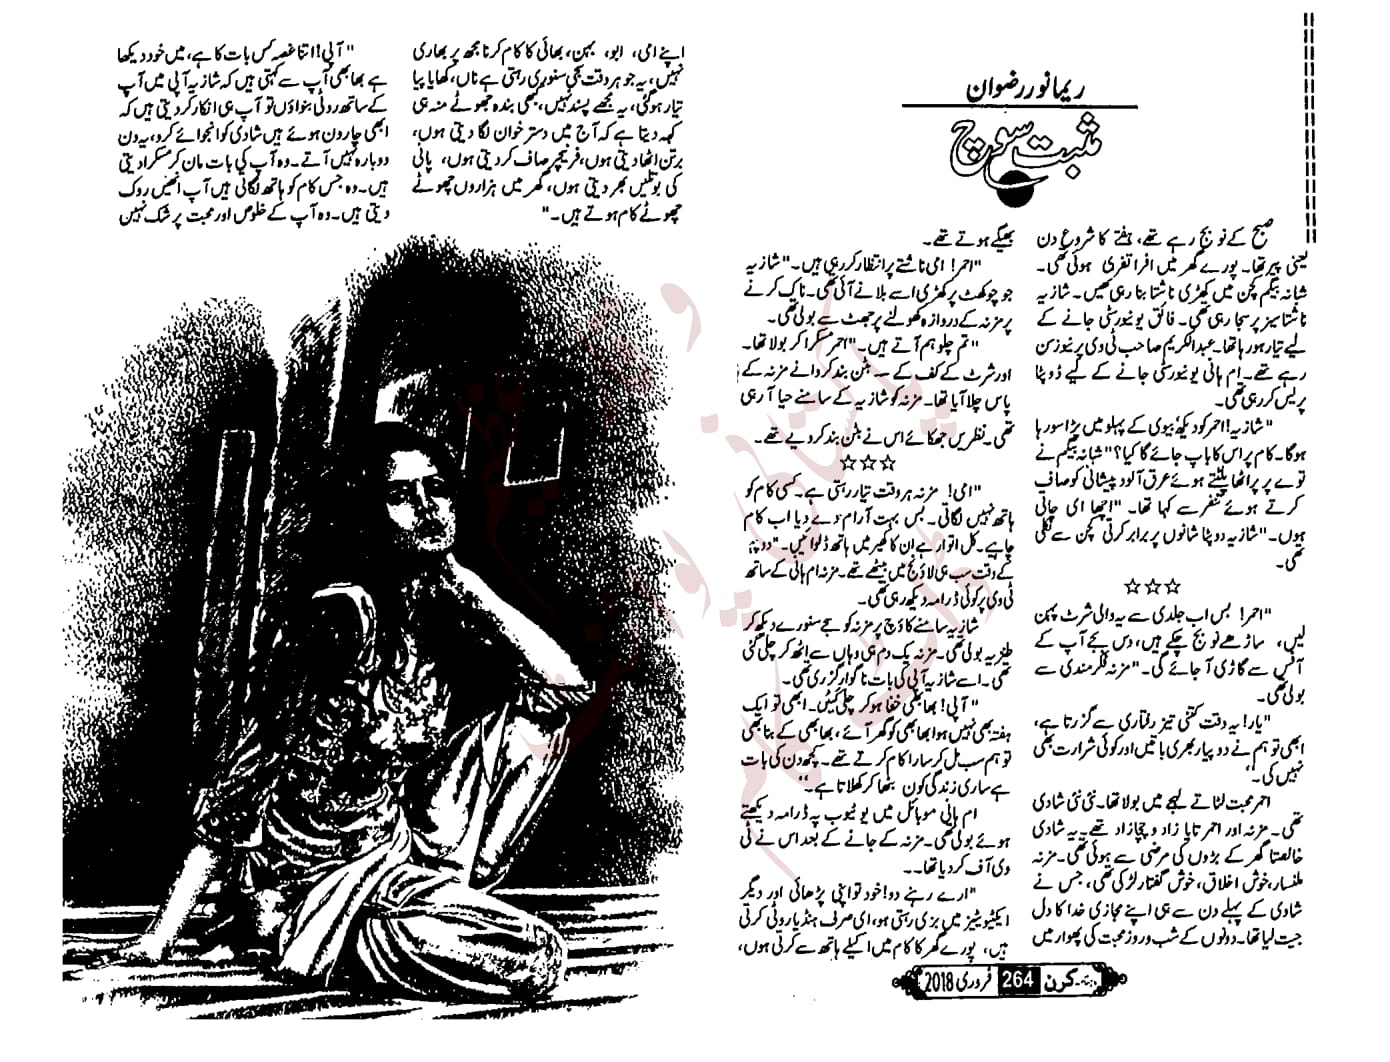 ریمانور رضوان
مثبت سوچ
صبح کے نو بج رہے تھے، ہفتے کا شروع دن
یعنی پیر تھا۔ پورے گھر میں افراتفری ہوئی تھی۔
شبانہ بیگم کچن میں کھڑی ناشتا بنا رہی تھیں۔ شازیہ
ناشتا میز پر سجا رہی تھی۔ فائق یونیورسٹی جانے کے
لیے تیار ہو رہا تھا۔ عبدالکریم صاحب ٹی وی پر نیوز سن
رہے تھے۔ ام ہانی یونیورسٹی جانے کے لیے ڈوپٹا
پریس کر رہی تھی۔
"شازیہ! احمر کو دیکھ بیوی کے پہلو میں پڑا سو رہا
ہوگا۔ کام پر اس کا باپ جائے گا کیا؟" شبانہ بیگم نے
توے پر پراٹھا پلٹتے ہوئے عرق آلود پیشانی کو صاف
کرتے ہوئے تنفر سے کہا تھا۔ "اچھا ای جاتی
ہوں۔" شازیہ دوپٹا شانوں پر برابر کرتی کچن سے نکلی
تھی۔
☆☆☆
"احمر! بس اب جلدی سے یہ والی شرٹ پہن
لیں، ساڑھے نو بج چکے ہیں، دس بجے آپ کے
آفس سے گاڑی آ جائے گی۔" مزنہ فکر مندی سے
بولی تھی۔
"یار! یہ وقت کتنی تیز رفتاری سے گزرتا ہے،
ابھی تو ہم نے دو پیار بھری باتیں اور کوئی شرارت بھی
نہیں کی۔"
احمر محبت لٹاتے لہجے میں بولا تھا۔ نئی نئی شادی
تھی۔ مزنہ اور احمر تایا زاد و چچا زاد تھے۔ یہ شادی
خالصتا گھر کے بڑوں کی مرضی سے ہوئی تھی۔ مزنہ
ملنسار، خوش اخلاق، خوش گفتار لڑکی تھی، جس نے
شادی کے پہلے دن سے ہی اپنے مجازی خدا کا دل
جیت لیا تھا۔ دونوں کے شب و روز محبت کی پھوار میں
بھیگے ہوتے تھے۔
"احمر! امی ناشتے پر انتظار کر رہی ہیں۔" شازیہ
جو چوکھٹ پر کھڑی اسے بلانے آئی تھی۔ ناک کرنے
پر مزنہ کے دروازہ کھولنے پر جھٹ سے بولی تھی۔
"تم چلو ہم آتے ہیں۔" احمر مسکرا کر بولا تھا۔
اور شرٹ کے کف کے بٹن بند کروانے مزنہ کے
پاس چلا آیا تھا۔ مزنہ کو شازیہ کے سامنے حیا آ رہی
تھی۔ نظریں جھکائے اس نے بٹن بند کر دیے تھے۔
☆☆☆
"امی! مزنہ ہر وقت تیار رہتی ہے۔ کسی کام کو
ہاتھ نہیں لگاتی۔ بس بہت آرام دے دیا اب کام
چاہیے۔ کل اتوار ہے ان کا کھیر میں ہاتھ ڈلوائیں۔" دوپہر
کے وقت سب ہی لاؤنج میں بیٹھے تھے۔ مزنہ ام ہانی کے ساتھ
ٹی وی پر کوئی ڈرامہ دیکھ رہی تھی۔
شازیہ سامنے کاؤچ پر مزنہ کو سجے سنورے دیکھ کر
طنزیہ بولی تھی۔ مزنہ یک دم ہی وہاں سے اٹھ کر چلی گئی
تھی۔ اسے شازیہ آپی کی بات ناگوار گزری تھی۔
"آپی! بھابھی خفا ہو کر چلی گئیں۔ ابھی تو ایک
ہفتہ بھی نہیں ہوا بھابی کو گھر آئے، بھابھی کے بنا بھی
تو ہم سب مل کر سارا کام کرتے تھے۔ کچھ دن کی بات
ہے ساری زندگی کون بٹھا کر کھلاتا ہے۔"
ام ہانی موبائل میں یو ٹیوب پہ ڈرامہ دیکھتے
ہوئے بولی تھی۔ مزنہ کے جانے کے بعد اس نے ٹی
وی آف کر دیا تھا۔۔
"ارے رہنے دو! خود تو اپنی پڑھائی اور دیگر
ایکٹیویٹیز میں بزی رہتی ہو، ای صرف ہنڈیا روٹی کرتی
ہیں، پورے گھر کا کام میں اکیلے ہاتھ سے کرتی ہوں،
اپنے امی، ابو، بہن، بھائی کا کام کرنا مجھ پر بھاری
نہیں، یہ جو ہر وقت سجی سنوری رہتی ہے ناں، کھایا پیا
تیار ہو گئی، یہ مجھے پسند نہیں، کبھی بندہ جھوٹے منہ ہی
کہہ دیتا ہے کہ آج میں دسترخوان لگا دیتی ہوں،
برتن اٹھا دیتی ہوں، فرنیچر صاف کر دیتی ہوں، پانی
کی بوتلیں بھر دیتی ہوں، گھر میں ہزاروں چھوٹے
چھوٹے کام ہوتے ہیں۔"
"آپی! اتنا غصہ کس بات کا ہے، میں خود دیکھا
ہے بھابھی آپ سے کہتی ہیں کہ شازیہ آپی میں آپ
کے ساتھ روٹی بنواؤں تو آپ ہی انکار کر دیتی ہیں کہ
ابھی چار دن ہوئے ہیں شادی کو انجوائے کرو، یہ دن
دوبارہ نہیں آتے۔ وہ آپ کی بات مان کر مسکرا دیتی
ہیں۔ وہ جس کام کو ہاتھ لگاتی ہیں آپ انھیں روک
دیتی ہیں۔ وہ آپ کے خلوص اور محبت پر شک نہیں
کرن 264 فروری 2018